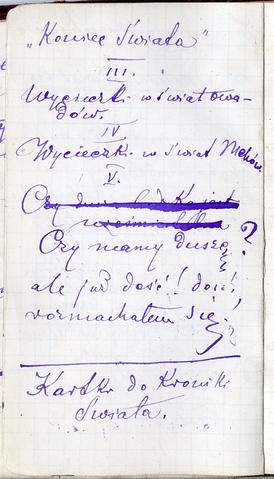 „Koniec Świata"
III.
Wycieczki w świat owa-
dów.
IV
Wycieczki w świat Mchów.
V.
Czy
Czy mamy duszę?
ale już dość! dość!
rozmachałem się!
Kartki do Kroniki
Świata.